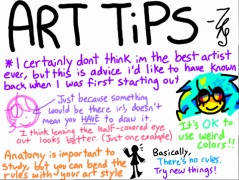 ART TiPS -
* I certainly dont think im the best artist
ever, but this is advice i'd like to have known
back when I was first starting out
Just because something
would be there it's doesn't
mean you HAVE to draw it.
I think leaving the half-covered eye
out looks better (Just one example)
It's OK to
use weird
colors!!
Anatomy is important to
study, but you can bend the
rules with your art style
Basically,
There's no rules.
Try new things!